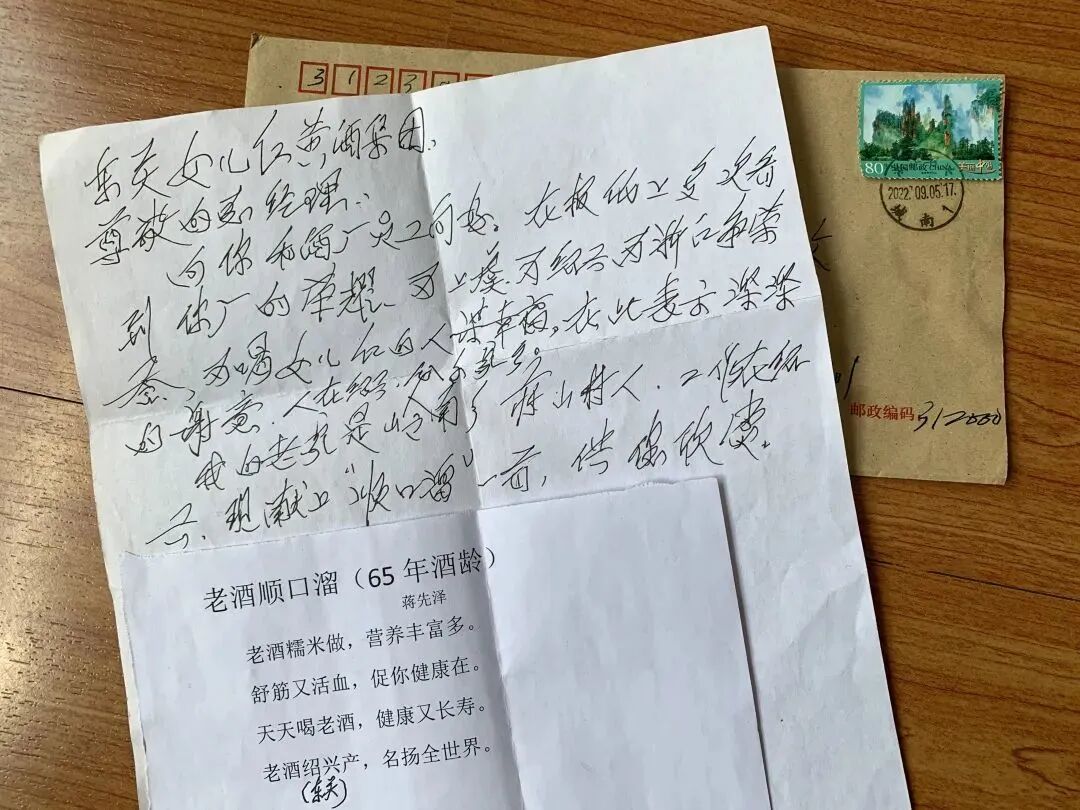 3 1 2 3
80 中国邮政 CHINA
2022.09.05.17
南 1
邮政编码 312000
东关女儿红黄酒集团、
尊敬的总经理:
向你和酒厂员工问好。在报纸上多次看
到你厂的荣耀,为上虞、为绍兴、为浙江争荣
为喝女儿红的人谋幸福。在此表示深深
的谢意。人在绍兴
我的老家是岭南乡蒋山村人,工作在绍
兴,现献上“顺口溜”一首,供您欣赏。
老酒顺口溜(65 年酒龄)
蒋先泽
老酒糯米做,营养丰富多。
舒筋又活血,促你健康在。
天天喝老酒,健康又长寿。
老酒绍兴产,名扬全世界。
(东关)